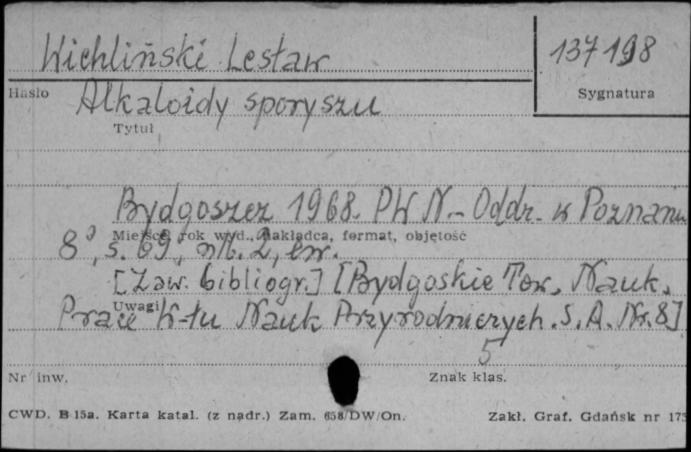 Wichliński Lesław
137198
Hasło
Sygnatura
Alkaloidy sporyszu
Tytuł
Bydgoszcz 1968. PWN.- Oddz. w Poznaniu
Miejsce, rok wyd., nakładca, format, objętość
8°, s. 69, nlb. 2, err.
[Zaw. bibliogr.] [Bydgoskie Tow. Nauk.
Uwagi
Prace W-łu Nauk Przyrodniczych. S. A. Nr. 8]
5
Nr inw.
Znak klas.
CWD. B 15a. Karta katal. (z nadr.) Zam. 658/DW/On.
Zakł. Graf. Gdańsk nr 175